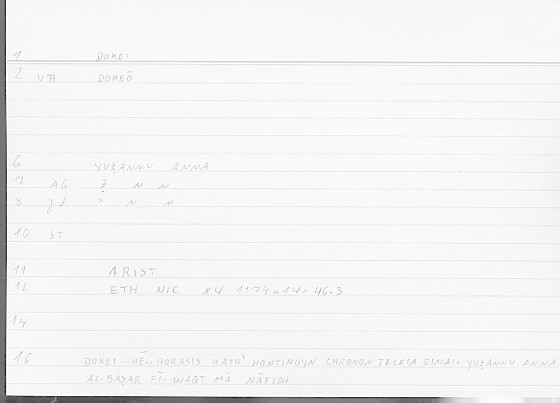 1 DOKEI
2 VB DOKEŌ
6 YUẒANNU ANNA
7 AG Ẓ N N
8 JZ N N
10 ST
11 ARIST
12 ETH NIC X4 1174a14
14
16 DOKEI HĒ HORASIS KATH' HONTINOYN CHRONON TELEIA EINAI YUẒANNU ANNA
AL-BAṢAR FĪ WAQT MĀ NĀFIDH